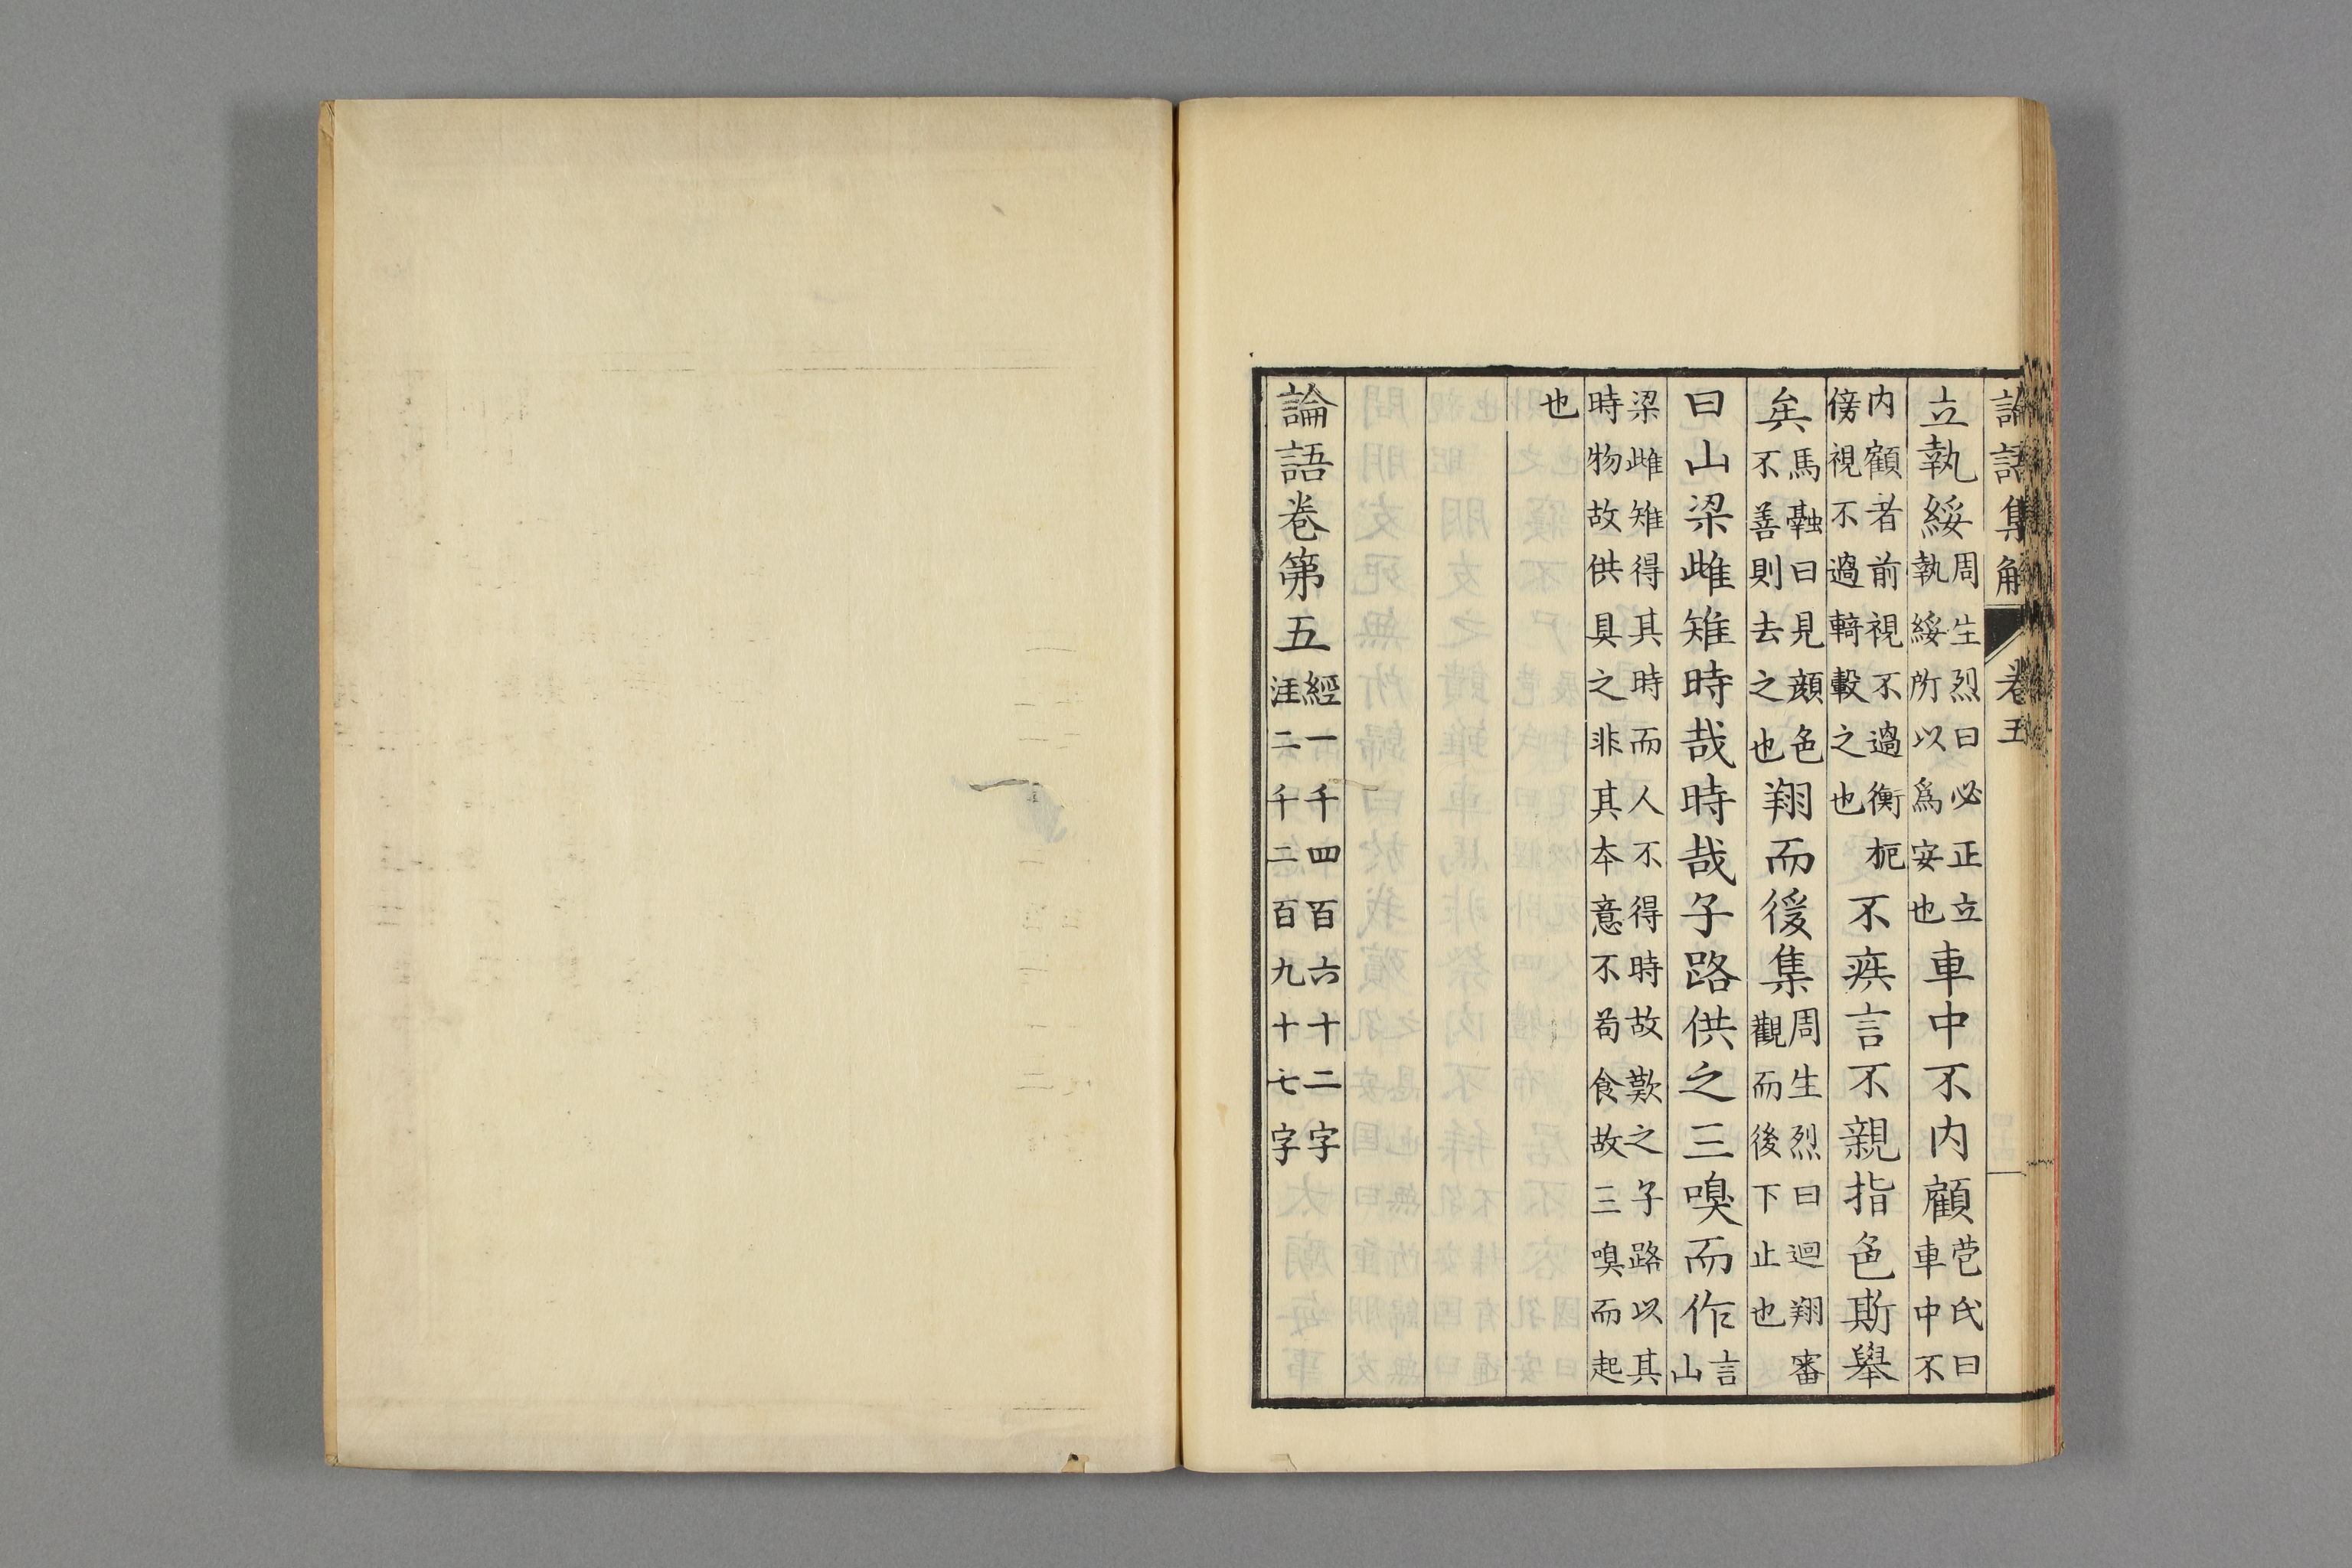 論語集解 卷五
立執綏周生烈曰必正立執綏所以爲安也車中不内顧苞氏曰車中不
内顧者前視不過衡枙傍視不過輢轂之也不疾言不親指色斯舉
矣馬融曰見顔色不善則去之也翔而後集周生烈曰迴翔審觀而後下止也
曰山梁雌雉時哉時哉子路供之三嗅而作言山
梁雌雉得其時而人不得時故歎之子路以其時物故供具之非其本意不苟食故三嗅而起
也
論語卷第五經一千四百六十二字注二千二百九十七字